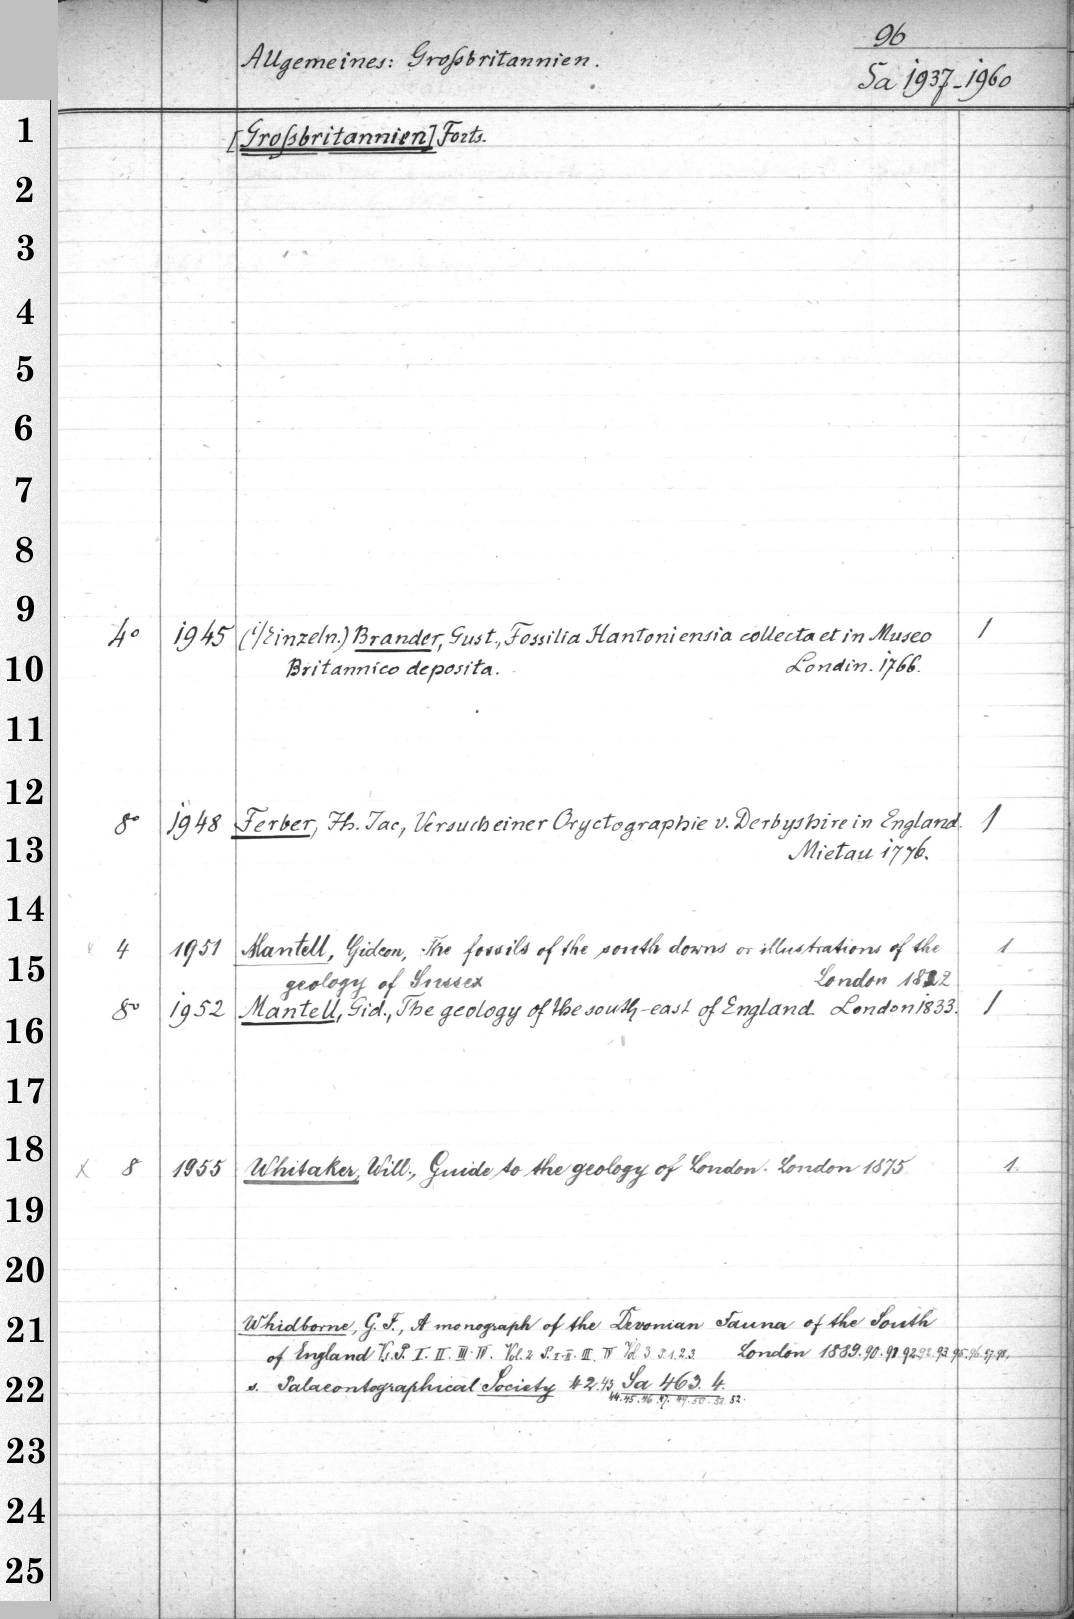 96
Allgemeines: Großbritannien.
Sa 1937-1960
1
[Großbritannien] Forts.
2
3
4
5
6
7
8
9
4° 1945 (1/Einzeln.) Brander, Gust., Fossilia Hantoniensia collecta et in Museo 1
10
Britannico deposita. Londin. 1766.
11
12
8° 1948 Ferber, Jh. Jac, Versuch einer Oryctographie v. Derbyshire in England. 1
13
Mietau 1776.
14
4 1951 Mantell, Gideon, The fossils of the south downs or illustrations of the 1
15
geology of Sussex London 1822
8° 1952 Mantell, Gid., The geology of the south-east of England. London 1833. 1
16
17
18
x 8 1955 Whitaker, Will., Guide to the geology of London. London 1875 1.
19
20
21
Whidborne, G. F., A monograph of the Devonian Fauna of the South
of England P. I. II. III. IV. Vol. 2 P. I. II. III. IV Vol 3 London 1889. 90.
22
s. Palaeontographical Society 42.43 Sa 463. 4.
44. 45. 46. 47. 49. 50. 52.
23
24
25